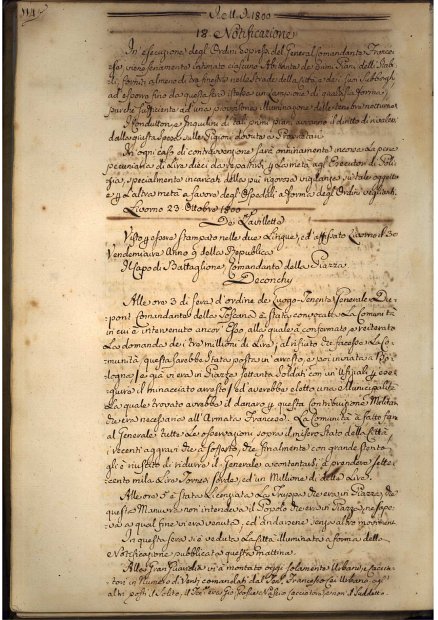 1800
18. Notificazione
In esecuzione degl'Ordini espressi del General Comandante France-
se, viene seriamente intimato a ciascuno Abitante dei Primi Piani delli Stabi-
li, forniti almeno di tre finestre nelle Strade della Città, e dei suoi Subborghi
ad esporre fino da questa sera stessa un Lampione di qualsisia forma,
purché sufficiente ad una provvisoria illuminazione delle tenebre notturne
I Conduttori, e Inquilini di tali primi piani avranno il diritto di rivalersi
della giusta spesa sulle Pigioni dovute ai Proprietari.
In ogni caso di contravvenzione sarà onninamente incorsa la pena
pecuniaria di Lire dieci da repartirsi, per la metà agl'Esecutori di Poli-
zia, specialmente incaricati della più rigorosa vigilanza su tale oggetto
e per l'altra metà a favore degl'Ospedali a forma degl'Ordini veglianti.
Livorno 23 Ottobre 1800
De Lavillette
Visto per essere stampato nelle due Lingue, ed affissato Livorno il 30
Vendemiaira Anno 9 della Repubblica
Il Capo di Battaglione Comandante della Piazza
Deconchy
Alle ore 3 di sera d'ordine del Luogo-Tenente Generale Du-
pont Comandante della Toscana è stata convocata la Comunità
in cui è intervenuto ancor Esso alla quale à confermato, e reiterato
la domanda dei tre millioni di Lire; al rifiuto che facesse la Co-
munità, questa sarebbe stata posta in arresto, e poi inviata a Bo-
logna; e già vi era in Piazza settanta Soldati con un Ufiziale per ese-
guire il minacciato arresto, ed averebbe eletta una Municipalità
la quale trovato avrebbe il danaro per questa Contribuzione Militare
che era necessario all'Armata Francese. La Comunità à fatte fare
al Generale tutte le osservazioni sopra il misero stato della Città
i recenti aggravi che à sofferto, che finalmente con grande stento
gli è riuscito di ridurre il Generale a contentarsi, a prendere sette-
cento mila Lire Tornesi sorde, ed un Millione di dette Lire.
Alle ore 5 è stata licenziata la Truppa che era in Piazza, che
questa Manuvra non intendeva il Popolo che era in Piazza, ne sape-
va a qual fine vi era venuta, ed andarsene senz'altro movimento
In questa sera si è veduta la Città illuminata a forma della
Notificazione pubblicata questa mattina.
Alla Gran Guardia in à montato oggi solamente Urbani, e Caccia-
tori in Numero di Venti comandati dal
altri posti il solito,